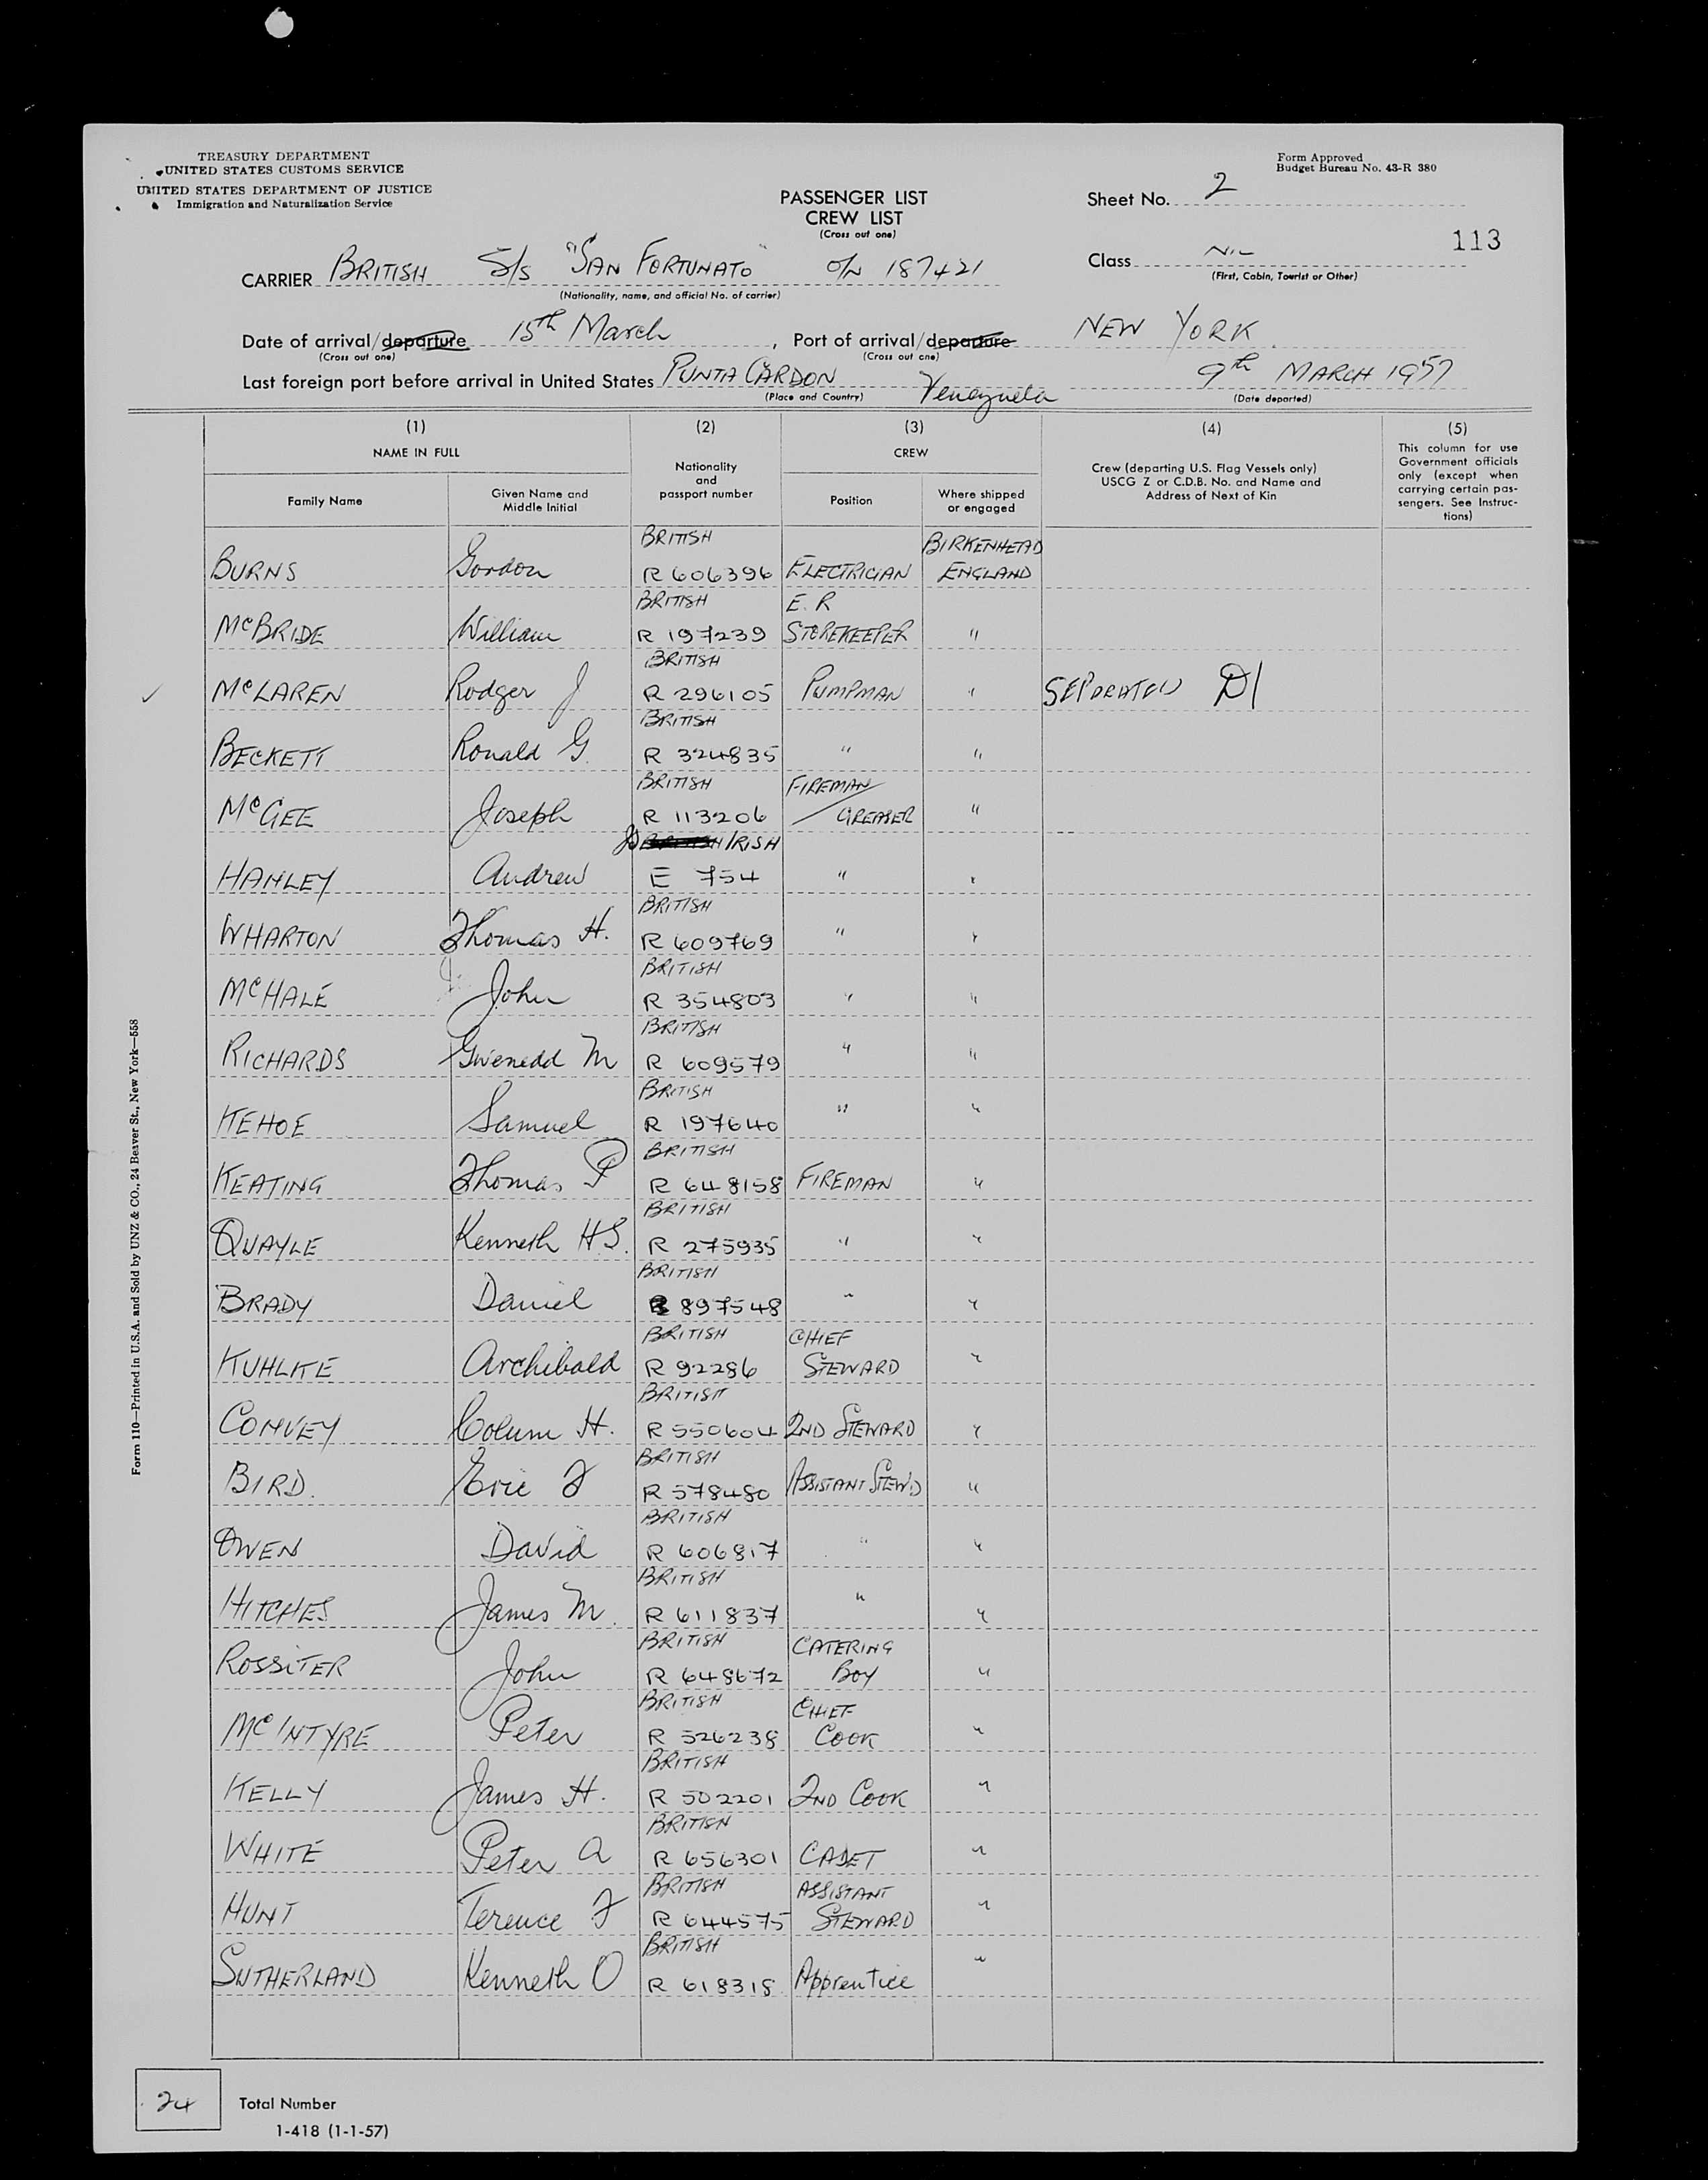 TREASURY DEPARTMENT
UNITED STATES CUSTOMS SERVICE
UNITED STATES DEPARTMENT OF JUSTICE
Immigration and Naturalization Service
Form Approved
Budget Bureau No. 43-R 380
PASSENGER LIST
CREW LIST
(Cross out one)
Sheet No. 2
113
CARRIER BRITISH S/S "SAN FORTUNATO" O/N 187421
(Nationality, name, and official No. of carrier)
Class NIL
(First, Cabin, Tourist or Other)
Date of arrival/departure 15th March, Port of arrival/departure NEW YORK
(Cross out one) (Cross out one)
Last foreign port before arrival in United States PUNTA CARDON Venezuela 9th MARCH 1957
(Place and Country) (Date departed)
(1) (2) (3) (4) (5)
NAME IN FULL Nationality and passport number CREW Crew (departing U.S. Flag Vessels only) USCG Z or C.D.B. No. and Name and Address of Next of Kin This column for use Government officials only (except when carrying certain passengers. See Instructions)
Family Name Given Name and Middle Initial Position Where shipped or engaged
BRITISH BIRKENHEAD
BURNS Gordon R 606396 ELECTRICIAN ENGLAND
BRITISH E.R
McBRIDE William R 197239 STOREKEEPER "
BRITISH
✓ McLAREN Rodger J R 296105 PUMPMAN " SEPARATED D1
BRITISH
BECKETT Ronald G. R 324835 " "
BRITISH FIREMAN/
McGEE Joseph R 113206 GREASER "
IRISH
HANLEY Andrew E 754 " "
BRITISH
WHARTON Thomas H. R 609769 " "
BRITISH
McHALE John R 354803 " "
BRITISH
RICHARDS Gwenedd M R 609579 " "
BRITISH
KEHOE Samuel R 197640 " "
BRITISH
KEATING Thomas P R 648158 FIREMAN "
BRITISH
QUAYLE Kenneth H.S. R 275935 " "
BRITISH
BRADY Daniel R 897548 " "
BRITISH CHIEF
KUHLKE Archibald R 92286 STEWARD "
BRITISH
CONVEY Colum H. R 550604 2ND STEWARD "
BRITISH
BIRD. Eric F R 578480 ASSISTANT STEW'D "
BRITISH
OWEN David R 606817 " "
BRITISH
HITCHES James M. R 611837 " "
BRITISH CATERING
ROSSITER John R 648672 BOY "
BRITISH CHIEF
McINTYRE Peter R 526238 COOK "
BRITISH
KELLY James H. R 502201 2ND COOK "
BRITISH
WHITE Peter A R 656301 CADET "
BRITISH ASSISTANT
HUNT Terence F R 644575 STEWARD "
BRITISH
SUTHERLAND Kenneth O R 618318 Apprentice "
24 Total Number
1-418 (1-1-57)
Form 110—Printed in U.S.A. and Sold by UNZ & CO., 24 Beaver St., New York—558